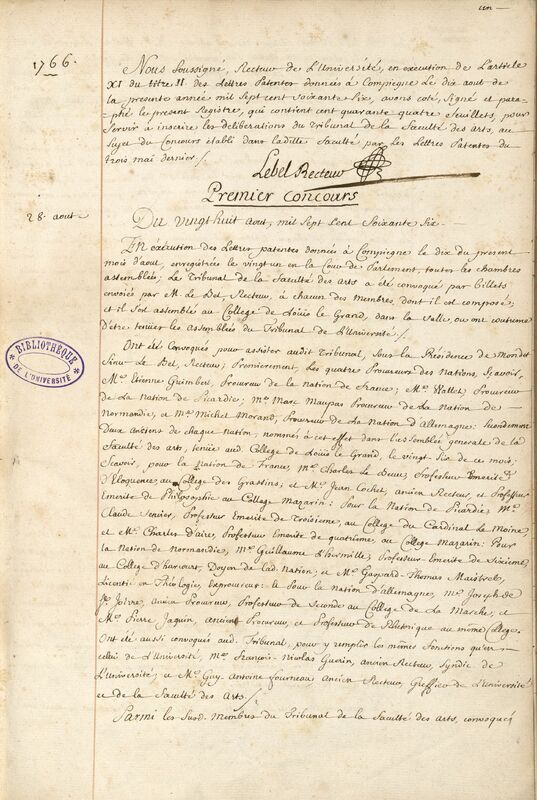 un —
1766.
Nous Soussigné, Recteur de L'Université, en exécution de L'article
XI du titre II des Lettres Patentes données à Compiegne Le dix aout de
la presente année mil Sept cent soixante Six, avons coté, signé et para-
phé le present Registre, qui contient cent quarante quatre feuillets, pour
servir à inscrire les deliberations du Tribunal de la Faculté des Arts, au
sujet du Concours etabli dans ladite Faculté par les Lettres Patentes du
trois mai dernier /.
Lebel Recteur
Premier Concours
28. aout
Du vingt huit Aout, mil Sept Cent Soixante Six —
En exécution des Lettres patentes données à Compiegne le dix du present
mois d'aout, enregistrées le vingt un en la Cour de Parlement, toutes les chambres
assemblées; Le Tribunal de la Faculté des Arts a été convoqué par billets
envoiés par M. Le Bel, Recteur, à chacun des membres, dont il est composé;
et il s'est assemblé au College de Louis le Grand, dans la Salle, où on a coutume
d'être tenues les Assemblées du Tribunal de L'Université /.
Ont été Convoqués pour assister audit Tribunal, sous la Présidence de
Le Bel, Recteur; Premierement, Les quatre Procureurs des Nations, Sçavoir,
Mre. Etienne Guimbert, Procureur de la Nation de France; Mre. Wallet, Procureur
de La Nation de Picardie; Mre Marc Maupas Procureur de La Nation de —
Normandie, et Mre Michel Morand, Procureur de La Nation d'Allemagne: Secondement
Deux Anciens de chaque Nation, nommés à cet effet dans l'assemblée generale de la
Faculté des arts, tenue aud. College de Louis le Grand, le vingt Six de ce mois,
Sçavoir, pour la Nation de France, Mre Charles Le Beau, Professeur Emerite
D'Eloquence au College des Grassins; et Mre Jean Cochet, ancien Recteur, et Professeur
Emerite de Philosophie au College Mazarin: Pour la Nation de Picardie Mre
Claude Sevier, Professeur Emerite de Troisieme, au College du Cardinal Le Moine,
et Mre. Charles d'Aire, Professeur Emerite de quatrième, au College Mazarin: Pour
la Nation de Normandie, Mre. Guillaume Professeur Emerite de Sixieme,
au College d'harcourt, Doyen de lad. Nation; et Mre Gaspard-Thomas
Licentié en Théologie, Exprocureur: & pour la Nation d'allemagne, Mre Joseph de
St. Jolvre, Ancien Procureur, Professeur de Seconde au College de La Marche; et
Mre. Pierre Jaquin, ancien Procureur, et Professeur de Rhétorique au même College.
Ont été aussi convoqués aud. Tribunal, pour y remplir les mêmes fonctions qu'en —
celui de L'Université, Mre François-Nicolas Guerin, ancien Recteur, Syndic de
L'Université; et Mre Guy Antoine fourneau Ancien Recteur, Greffier de L'Université
et de la Faculté des Arts /.
Parmi les Susd. membres du Tribunal de la Faculté des Arts, convoqués
BIBLIOTHÈQUE
DE L'UNIVERSITÉ